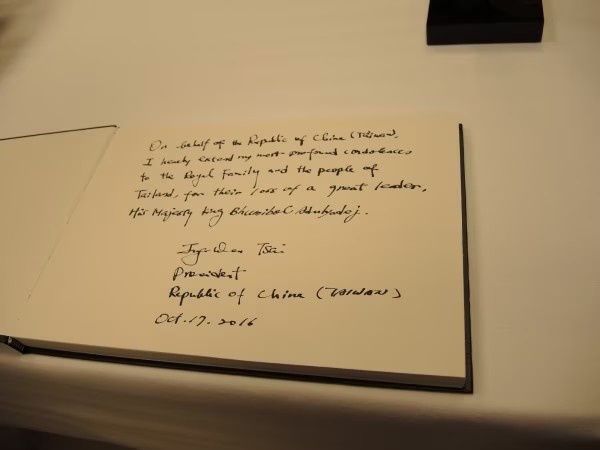 On behalf of the Republic of China (Taiwan),
I hereby extend my most profound condolences
to the Royal Family and the people of
Thailand, for their loss of a great leader,
His Majesty King Bhumibol Adulyadej.
Ing-wen Tsai
President
Republic of China (TAIWAN)
Oct. 17. 2016